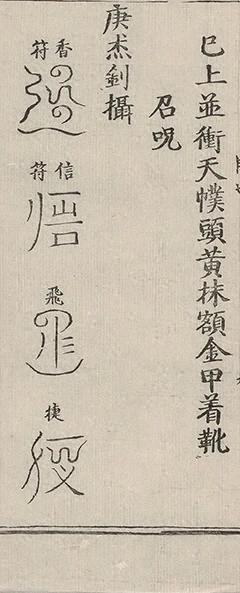 巳上並衝天幞頭黄抹額金甲着靴
召呪
庚杰釗攝
香符
信符
飛
捷